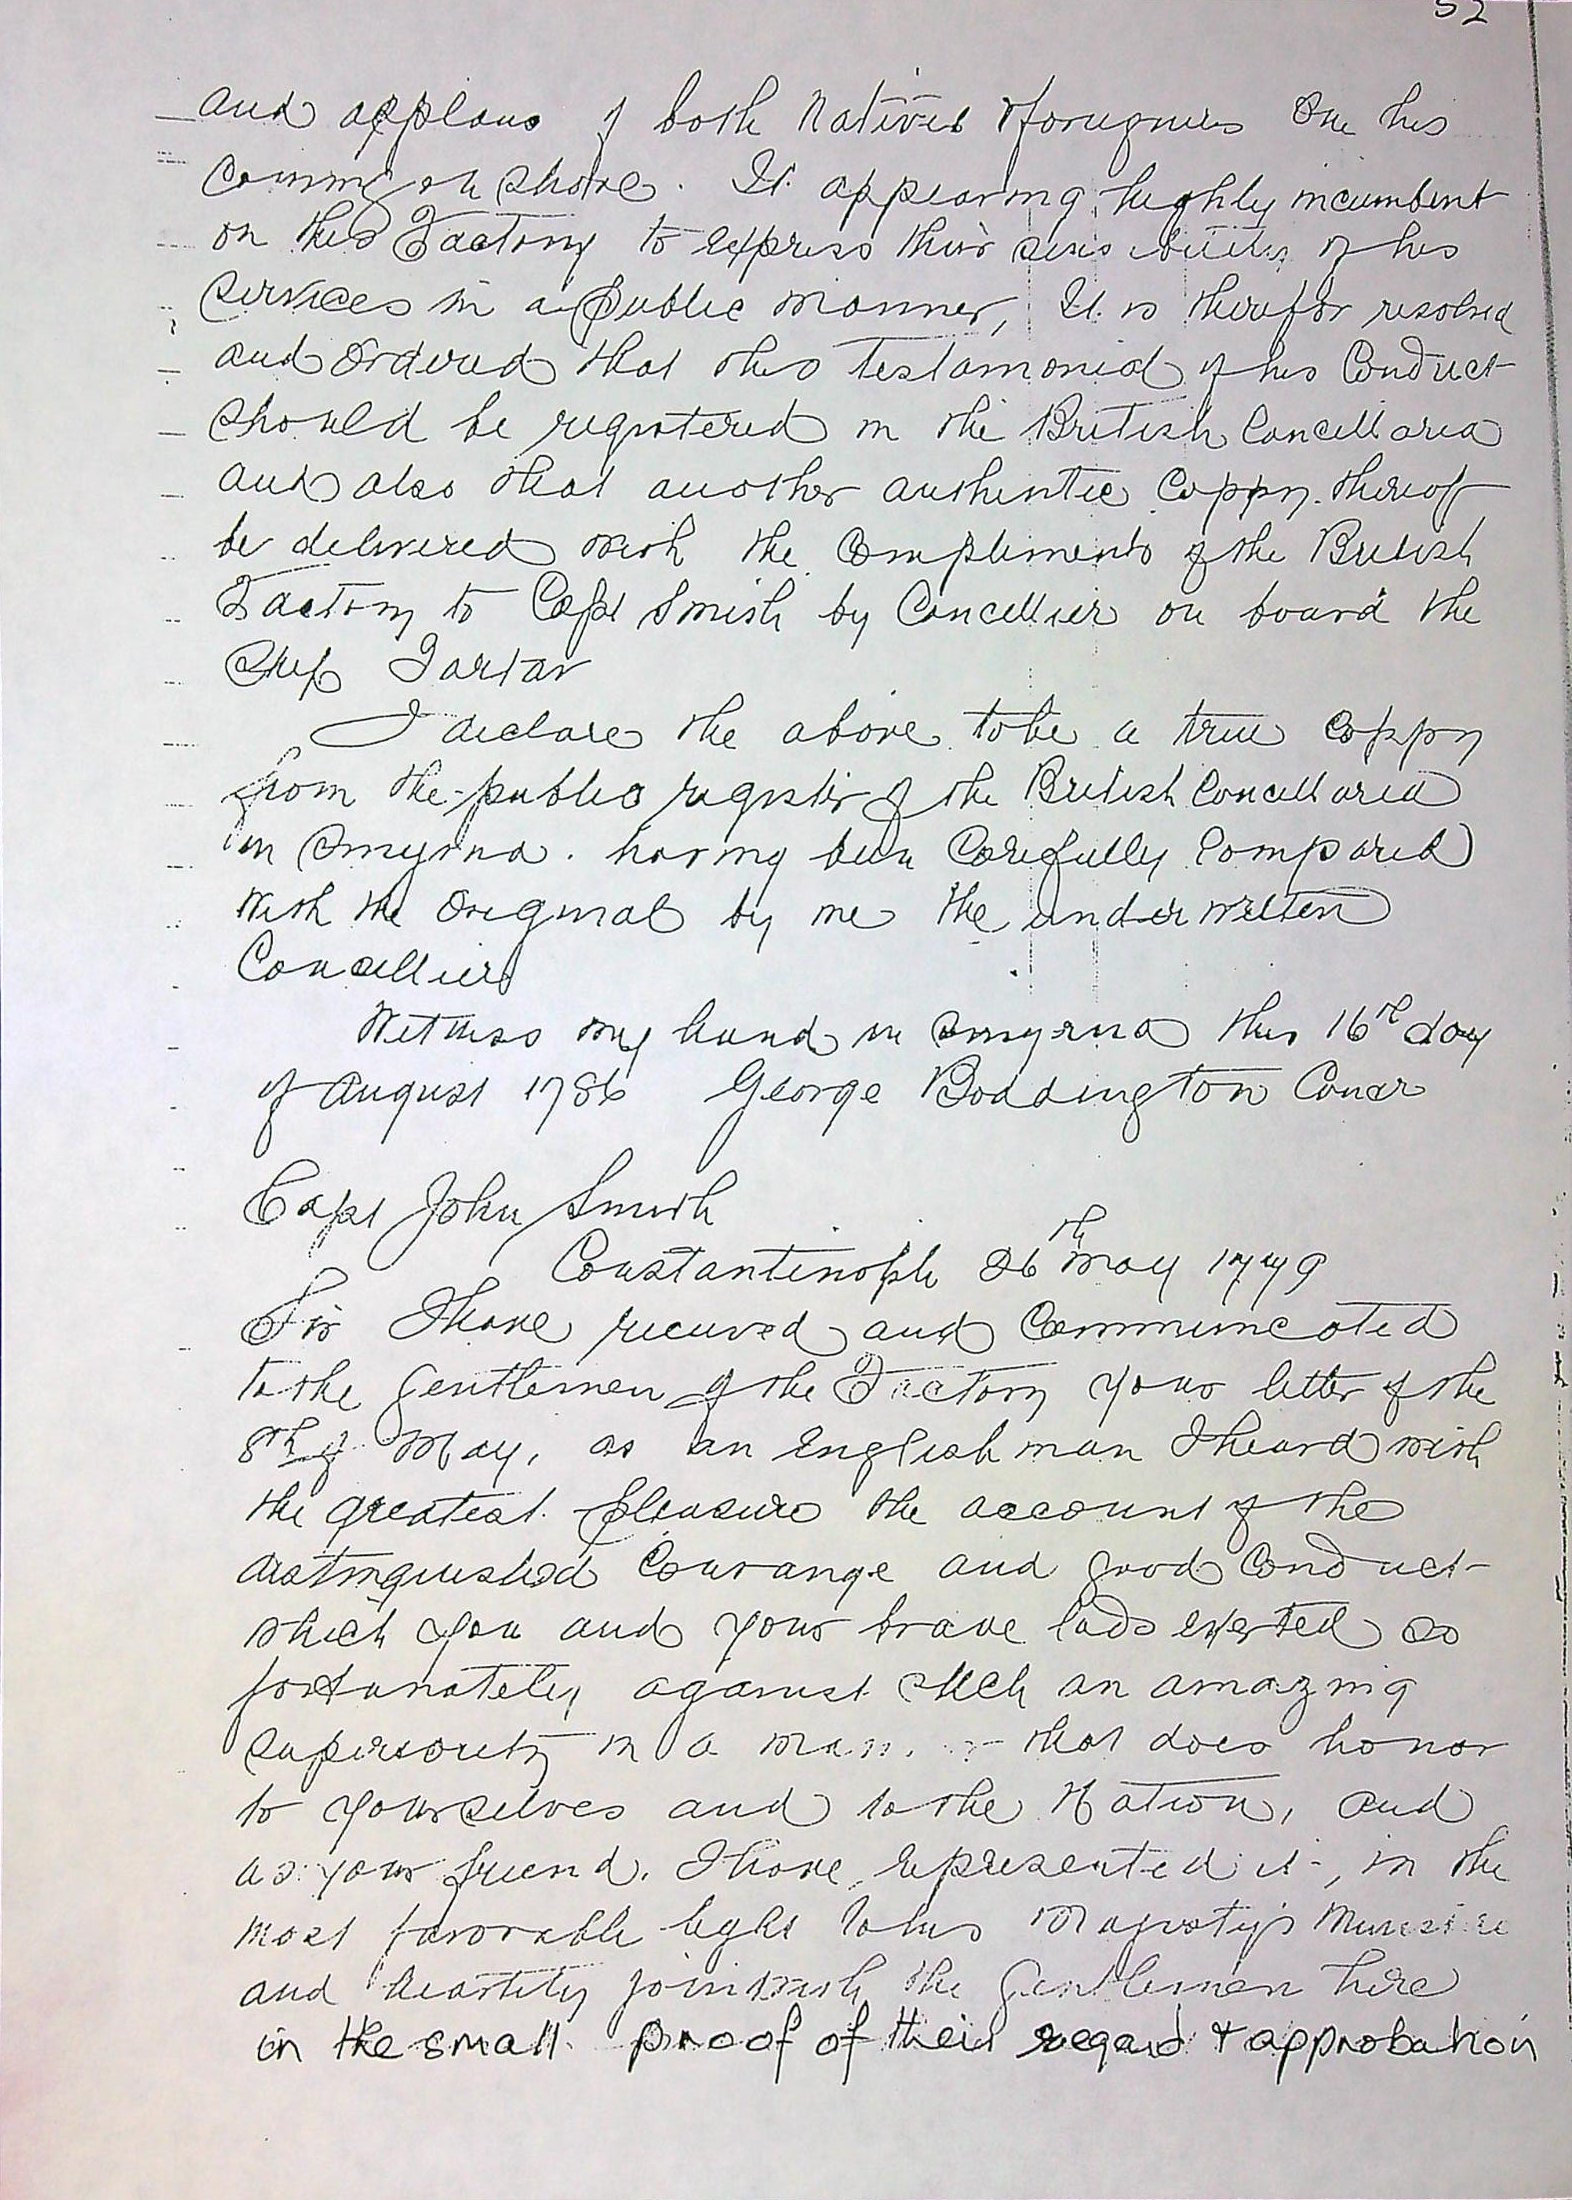 52
and applaus of both Natives & foruigners One his
Coming on Shore. It appearing highly incumbent
on this Factory to express their sensibility of his
Services in a public manner, It is therefor resolved
and Ordered that this Testamonial of his Conduct
Should be registered in the British Concellaria
and also that another authentic Coppy thereof
be delivered with the Compliments of the British
Factory to Capt Smith by Concellier on board the
Ship Tartar
I declare the above to be a true Coppy
from the public register of the British Concellaria
in Smyrna. having been Carefully Compared
With the Original by me the underwritten
Concellier
Witness my hand in Smyrna this 16th day
of August 1786 George Boddington Concr
Capt John Smith
Constantinople 26th May 1779
Sir I have received and Communicated
to the Gentlemen of the Factory your letter of the
8th of May, as an Englishman I heard with
the greatest pleasure the account of the
distinguished Courange and good Conduct
which you and your brave lads exerted so
fortunately against such an amazing
superiority in a that does honor
to yourselves and to the Nation, and
as your friend. I have represented it, in the
most favorable light to his Majesty's
and heartily join with the Gentlemen here
in the small proof of their regard & approbation